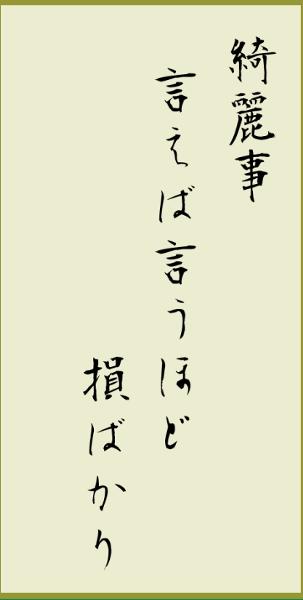 綺麗事
言えば言うほど
損ばかり